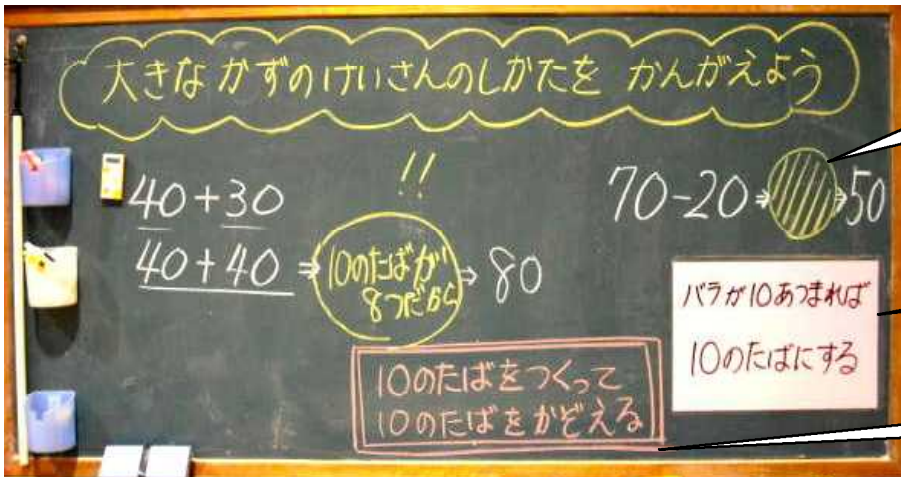 大きなかずのけいさんのしかたを かんがえよう
!!
40+30
40+40 ⇒ 10のたばが
8つだから ⇒ 80
70-20 ⇒ ⇒ 50
バラが10あつまれば
10のたばにする
10のたばをつくって
10のたばをかぞえる